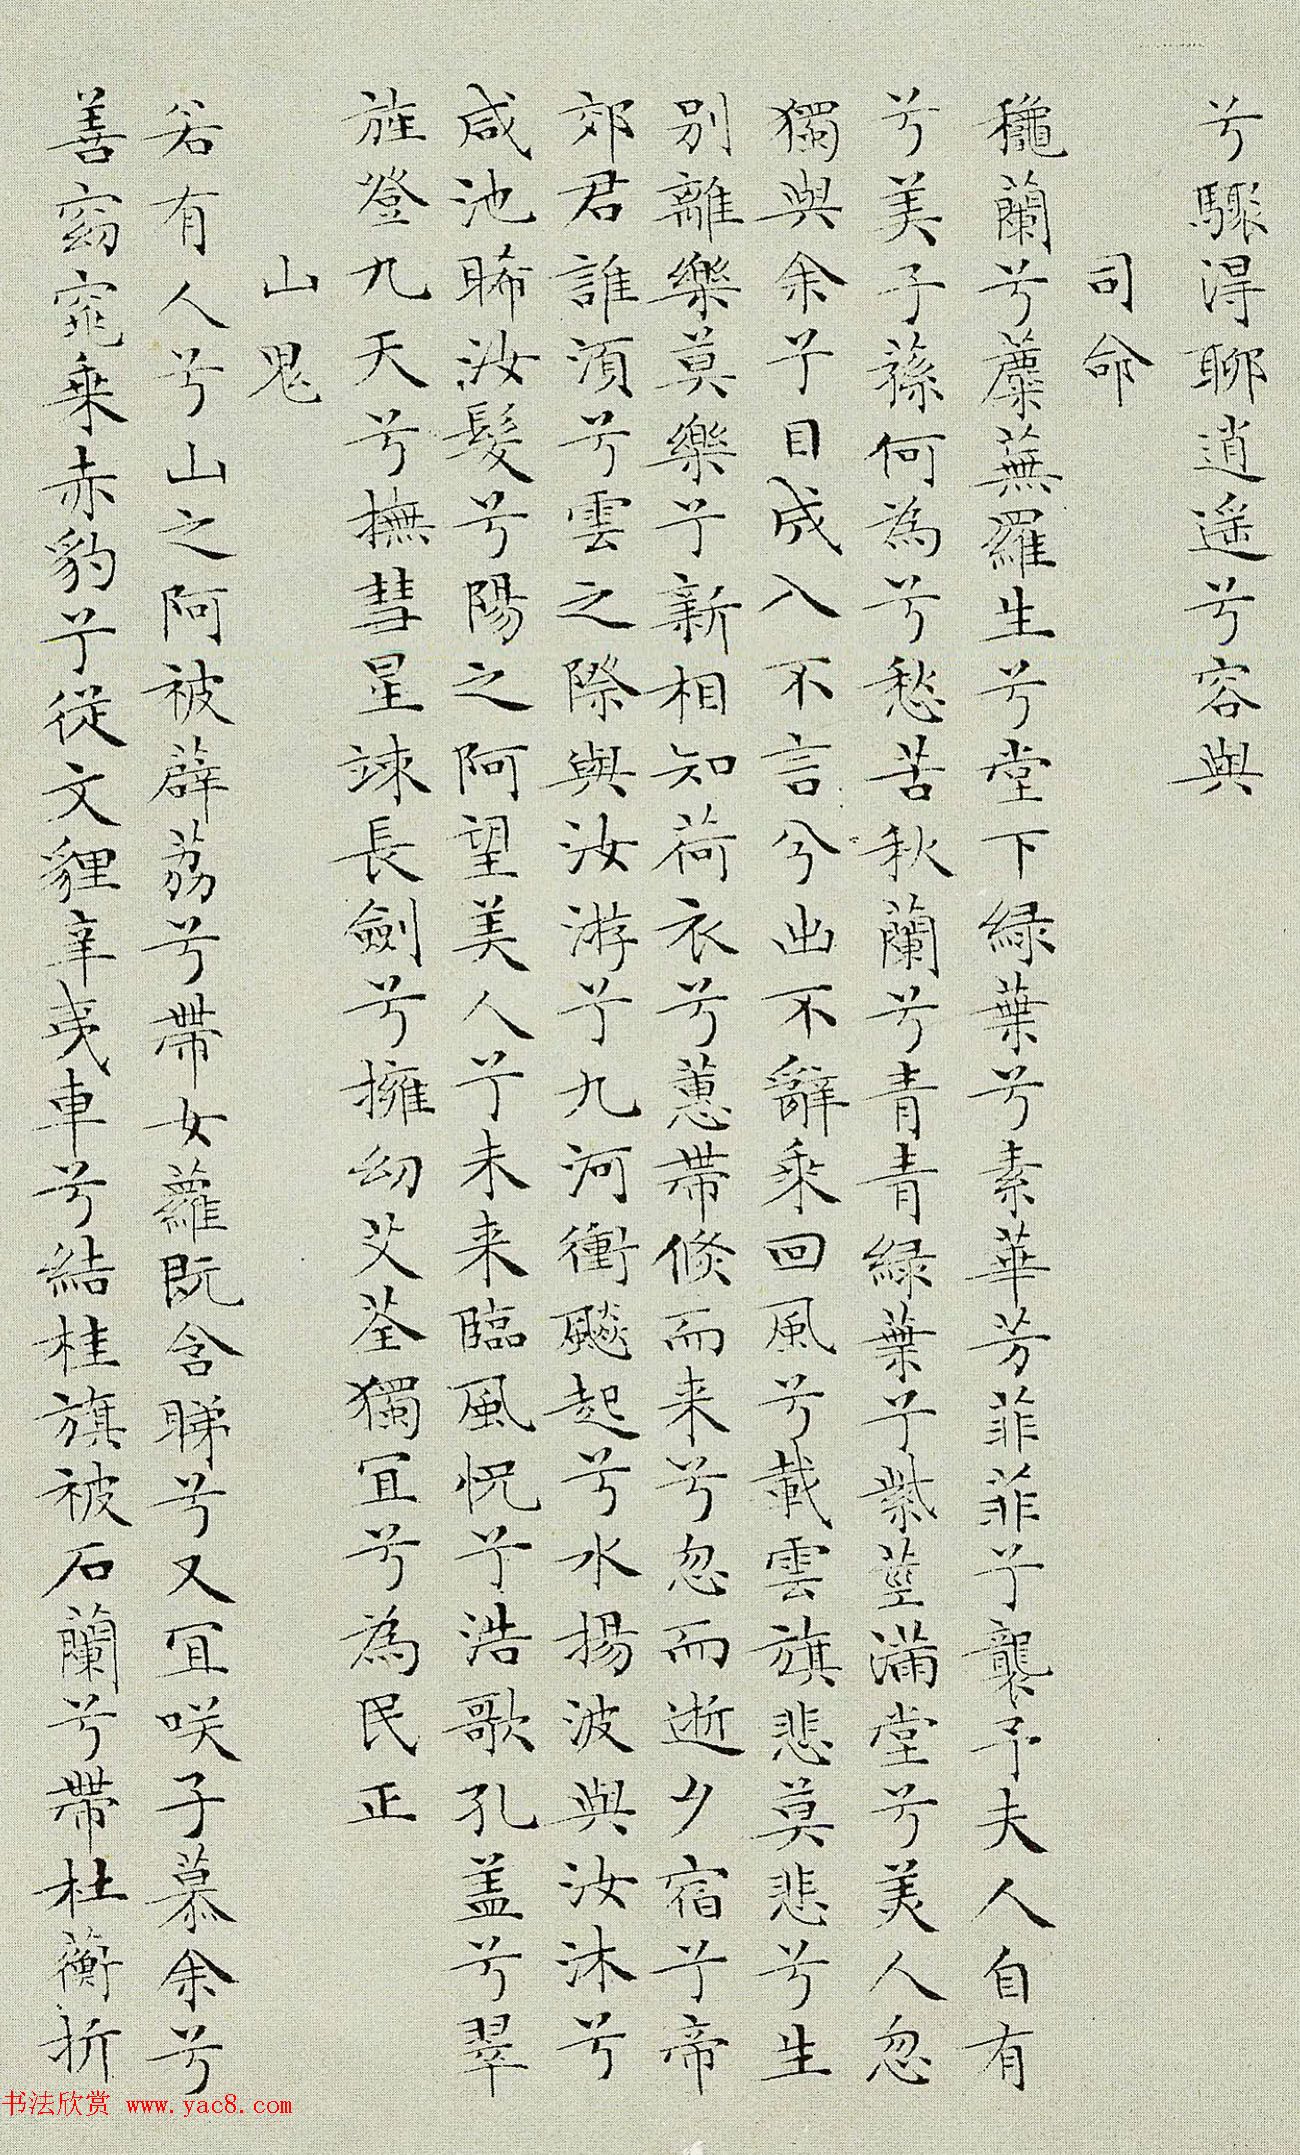 兮驟得聊逍遥兮容與
司命
穐蘭兮蘪蕪羅生兮堂下緑葉兮素華芳菲菲兮襲予夫人自有
兮美子蓀何為兮愁苦秋蘭兮青青緑葉兮紫莖滿堂兮美人忽
獨與余兮目成入不言兮出不辭乘回風兮載雲旗悲莫悲兮生
别離樂莫樂兮新相知荷衣兮蕙帶倏而来兮忽而逝夕宿兮帝
郊君誰湏兮雲之際與汝游兮九河衝飈起兮水揚波與汝沐兮
咸池晞汝髮兮陽之阿望美人兮未来臨風怳兮浩歌孔盖兮翠
旌登九天兮撫彗星竦長劍兮擁幼艾荃獨宜兮為民正
山鬼
若有人兮山之阿被薜荔兮帶女蘿既含睇兮又宜咲子慕余兮
善窈窕乘赤豹兮從文貍辛夷車兮結桂旗被石蘭兮帶杜蘅折
书法欣赏 www.yac8.com